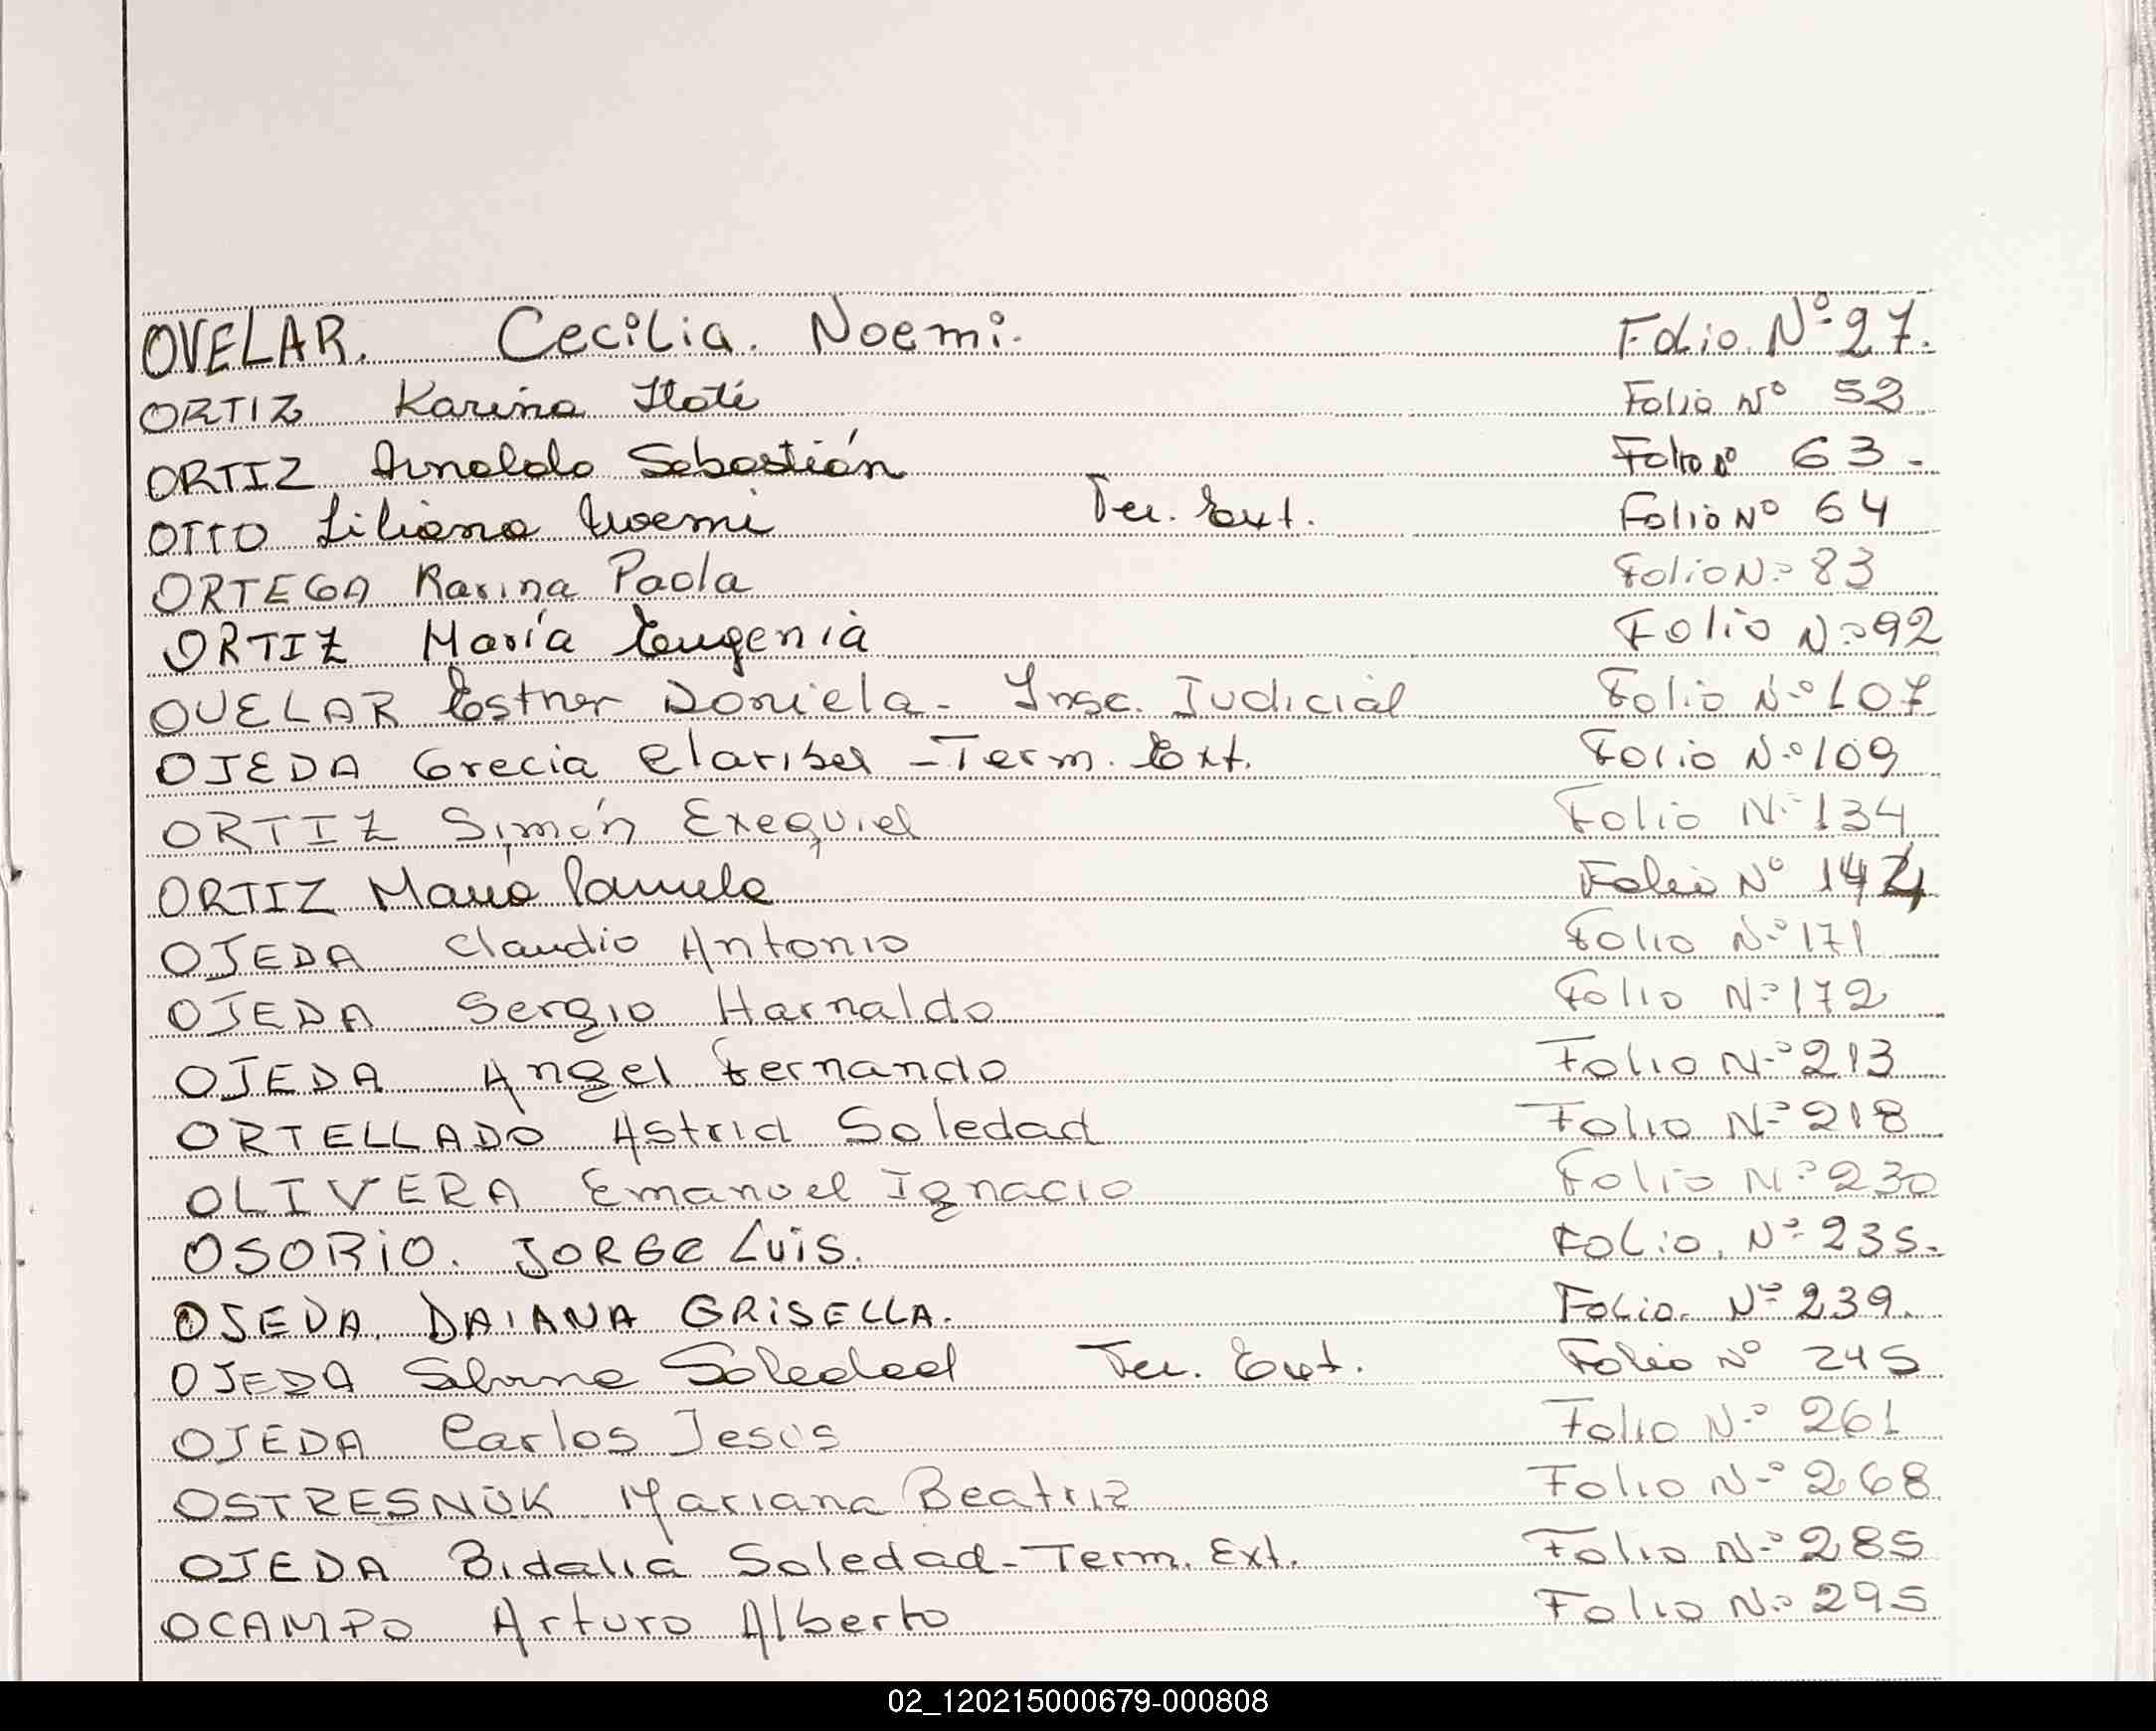 OVELAR. Cecilia. Noemi. Folio. Nº 27.
ORTIZ Karina Itatí Folio Nº 52
ORTIZ Arnaldo Sebastián Folio Nº 63.
OTTO Liliana Noemi Ter. Ext. Folio Nº 64
ORTEGA Karina Paola Folio Nº 83
ORTIZ María Eugenia Folio Nº 92
OVELAR Esther Daniela - Insc. Judicial Folio Nº 107
OJEDA Grecia Claribel - Term. Ext. Folio Nº 109
ORTIZ Simón Exequiel Folio Nº 134
ORTIZ María Pamela Folio Nº
OJEDA Claudio Antonio Folio Nº 171
OJEDA Sergio Harnaldo Folio Nº 172
OJEDA Angel Fernando Folio Nº 213
ORTELLADO Astrid Soledad Folio Nº 218
OLIVERA Emanuel Ignacio Folio Nº 230
OSORIO. JORGE LUIS. Folio. Nº 235.
OJEDA. DAIANA GRISELLA. Folio. Nº 239.
OJEDA Silvana Soledad Ter. Ext. Folio Nº 245
OJEDA Carlos Jesús Folio Nº 261
OSTRESNUK Mariana Beatriz Folio Nº 268
OJEDA Bidalia Soledad - Term. Ext. Folio Nº 285
OCAMPO Arturo Alberto Folio Nº 295
02_120215000679-000808